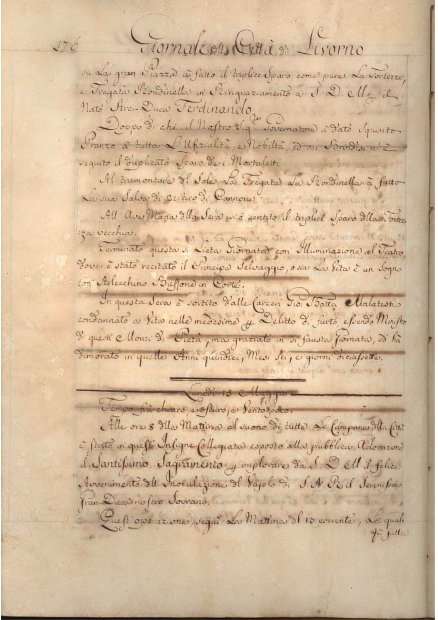 176 Giornale della Città di Livorno
la gran Piazza à fatto il triplice Sparo come pure La Fortezza,
e Fregata Rondinella in Ringraziamento a S. D. M. del
Nato Arci-Duca Ferdinando.
Doppo di che il Nostro Sig.re Governatore à dato Squisito
Pranzo a tutta L'Ufizialità, e Nobiltà, Brindisi n'è
seguito il duplicato Sparo de i Mortaletti.
Al tramontare del Sole La Fregata La Rondinella à fatto
La sua Salva di Tiro di Cannone.
All Ave Maria della Sera si è sentito il triplice Sparo della Fortez
za vecchia.
Terminato questa sì Lieta Giornata con Illuminazione al Teatro
dove è stato recitato il Principe Selvaggio, o sia La Vita è un Sogno
con Arlecchino Buffone in Corte.
In questa Sera è sortito dalle Carceri Gio. Batta Malatesti
condannato a Vita nelle medesime p Delitto di furto essendo Ministro
di questi Monti di Pietà, ma graziato in sì fausta Giornata, d'
dimorato in quelle Anni quindici, Mesi Sei, e giorni diciassette.
Lunedì 15 Maggio
Tempo fra chiaro, e oscuro, e Vento poco.
Alle ore 8 della Mattina al suono di tutte Le Campane della Città
è stato in questa Insigne Collegiata esposto alla pubblica Adorazione
il Santissimo Sagramento p implorare da S. D. M. il felice
Avvenimento dell Inoculazione del Vajolo di S. A. R. il Serenissimo
Gran-Duca nostro Sovrano.
Quest operazione seguì La Mattina del 13 corrente, La quale
fu fatta